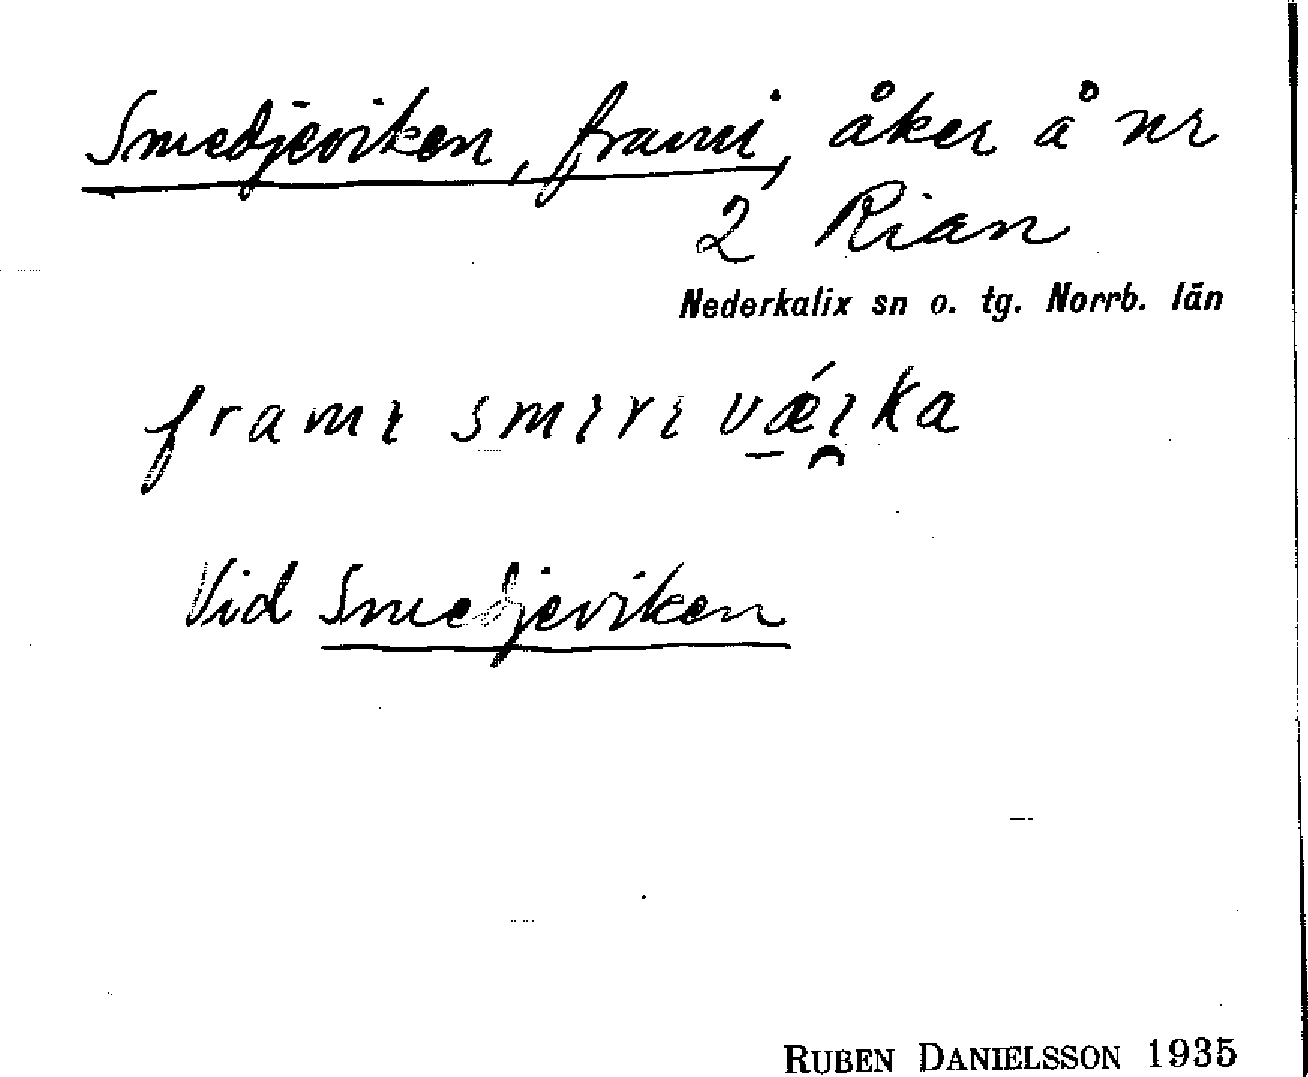 Smedjeviken, frami, åker å nr
2 Rian
Nederkalix sn o. tg. Norrb. län
framɩ smɩrɩ vǽ̠ɩ̯ka
Vid Smedjeviken
RUBEN DANIELSSON 1935